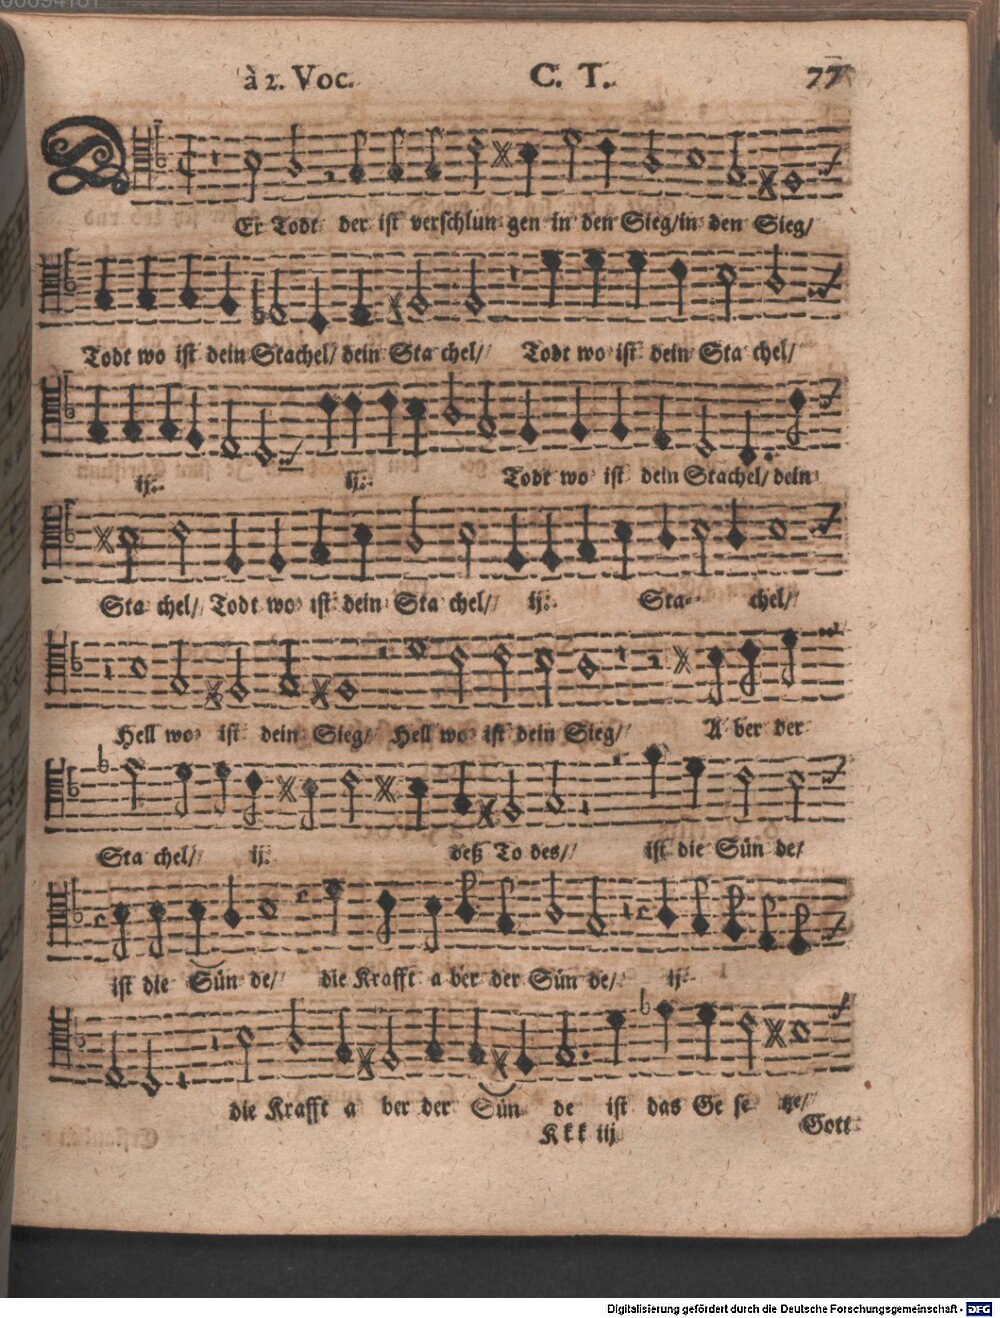 00094161
à 2. Voc. C. T. 77
DEr Todt der ist verschlun gen in den Sieg/in den Sieg/
Todt wo ist dein Stachel/dein Sta chel// Todt wo ist dein Sta chel/
ij:- ij:- Todt wo ist dein Stachel/dein
Sta chel// Todt wo ist dein Sta chel// ij:- Sta- chel//
Hell wo ist dein Sieg// Hell wo ist dein Sieg// A ber der
Sta chel// ij. deß To des// ist die Sün de/
ist die Sün de// die Krafft a ber der Sün de// ij:-
die Krafft a ber der Sün de ist das Ge se tze//
Kkk iij Gott
Digitalisierung gefördert durch die Deutsche Forschungsgemeinschaft - DFG